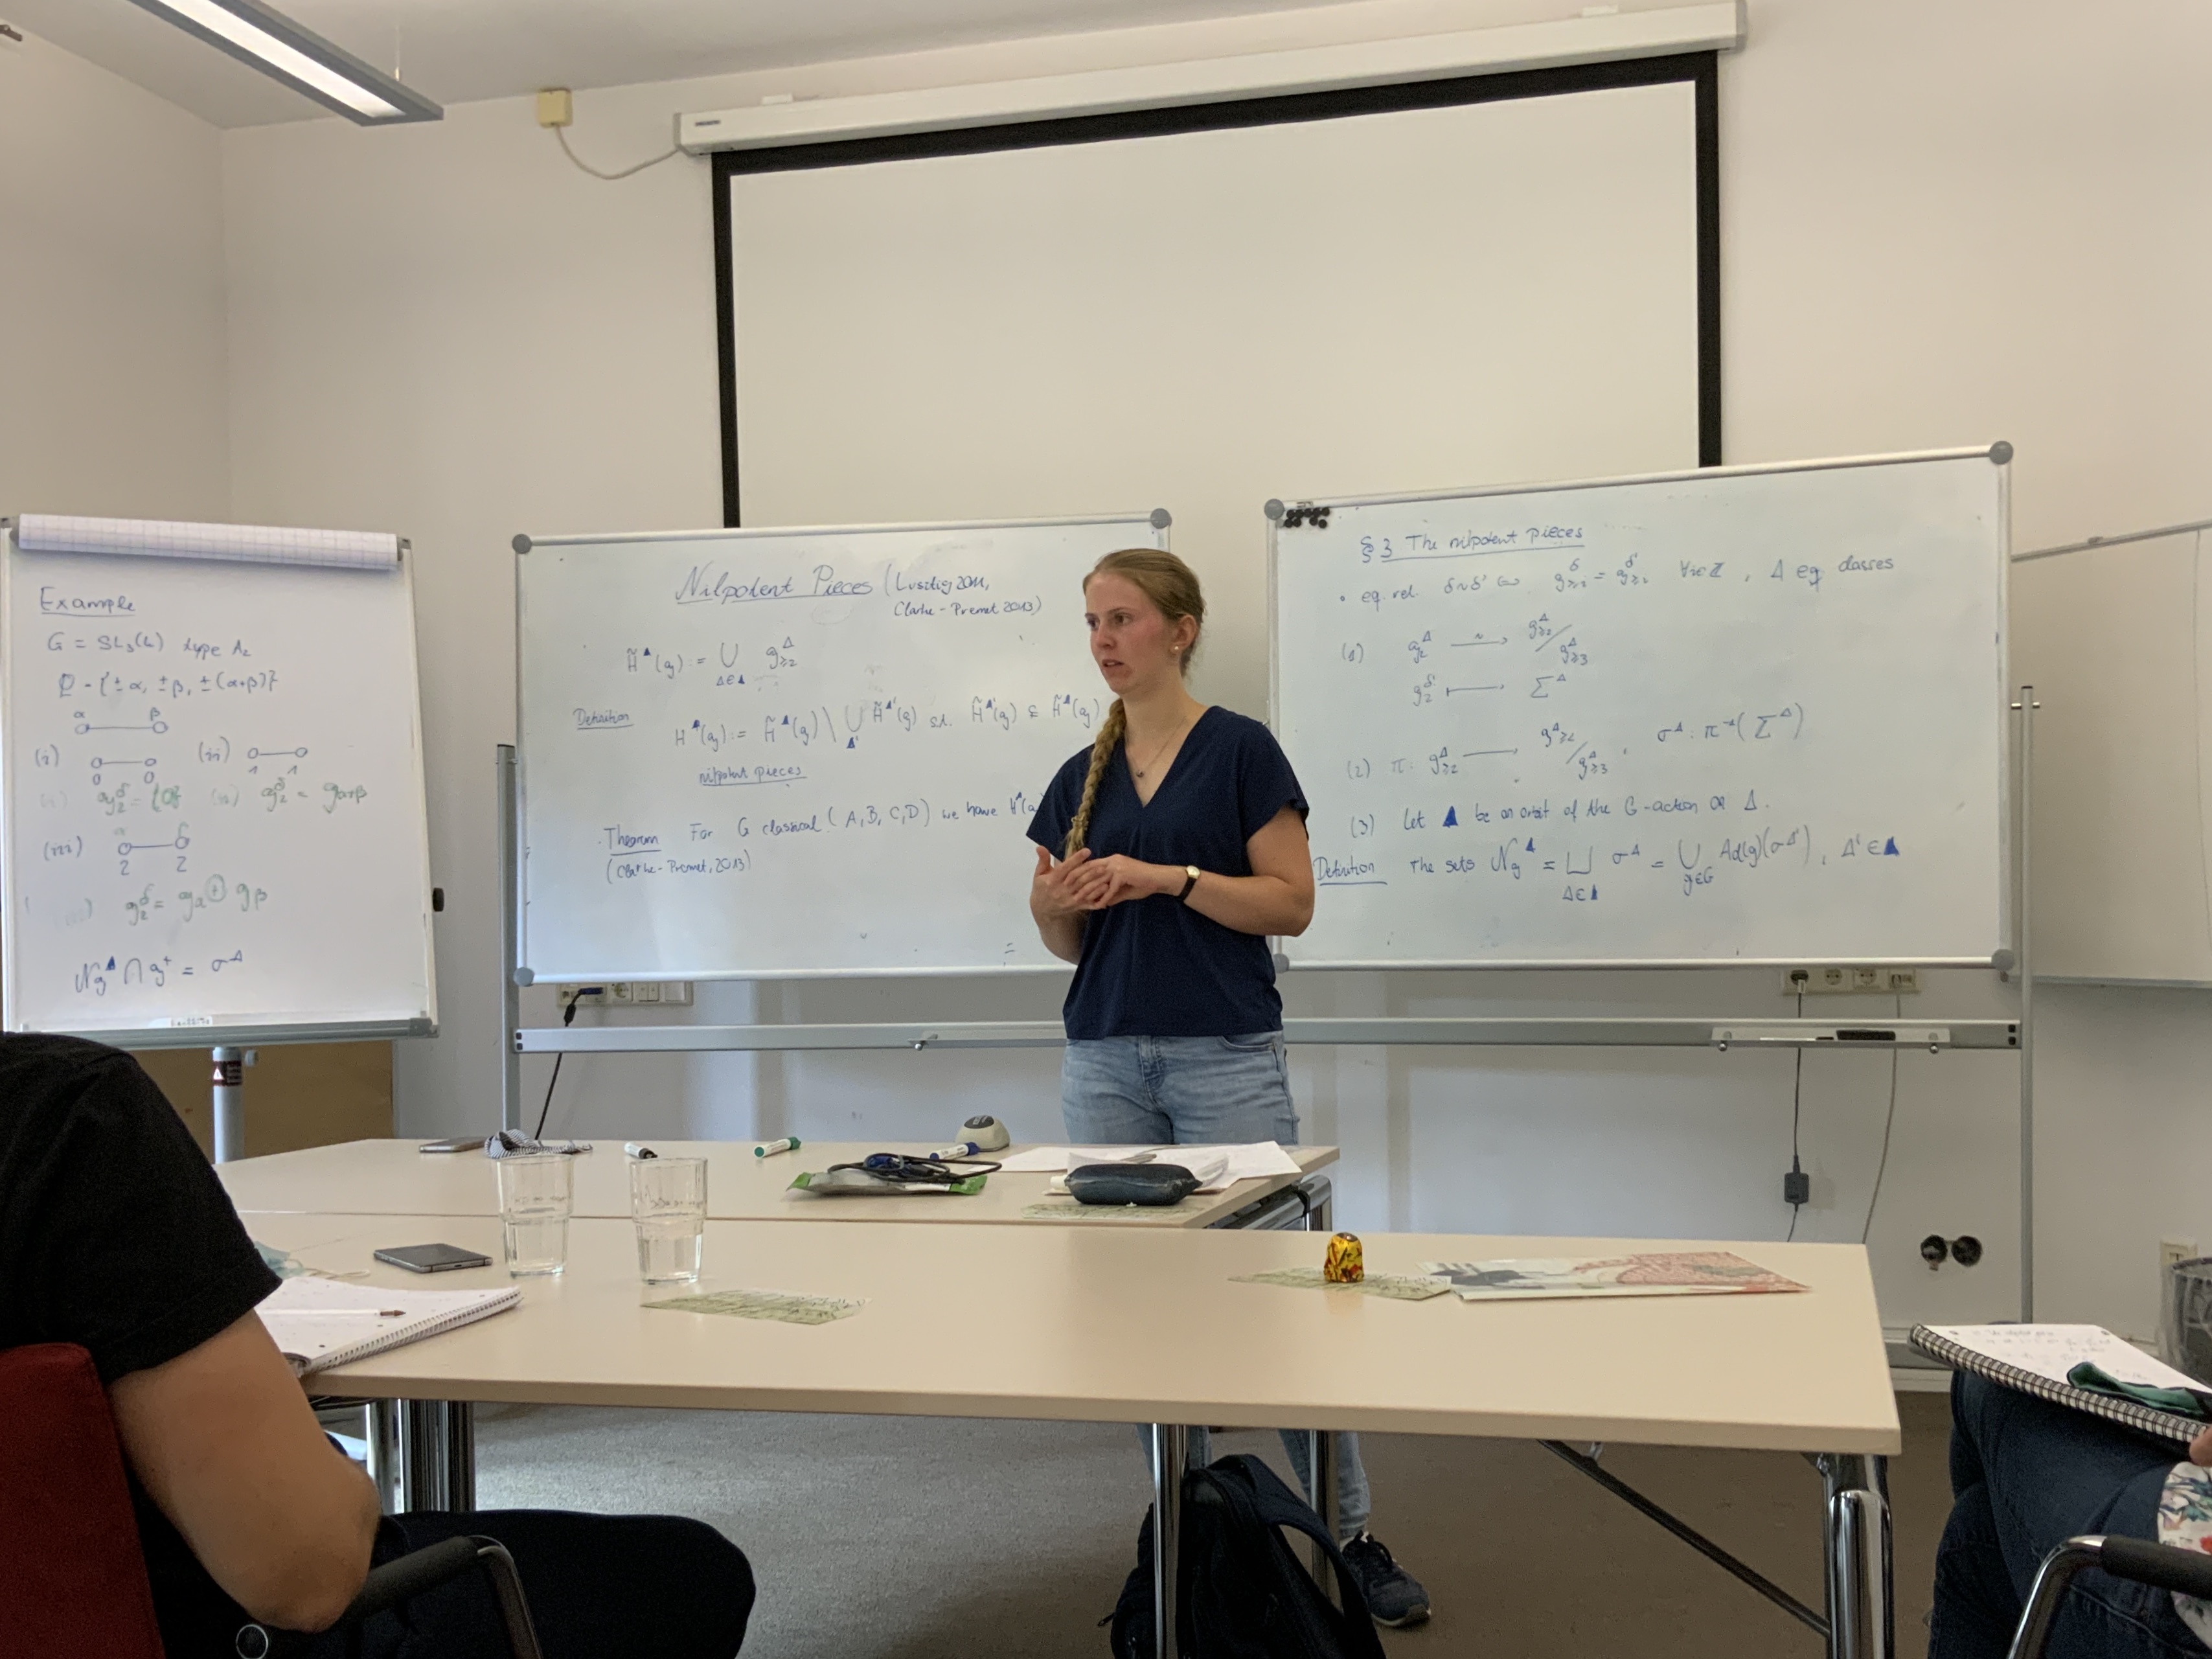 Example
G = SL₃(k) type A₂
Φ - {±α, ±β, ±(α+β)}
α β
(i) 0 0 (ii) 1 1
g₂^δ = {0} (ii) g₂^δ = g_{α+β}
(iii) 2 2
g₂^δ = g_α ⊕ g_β
N_g^▲ ∩ g⁺ = σ^Δ
Nilpotent Pieces (Lusztig 2011,
Clarke-Premet 2013)
H̃^▲(g) := ∪_{Δ∈▲} g_{≥2}^Δ
Definition H^▲(g) := H̃^▲(g) \ ∪_{▲'} H̃^▲'(g) s.t. H̃^▲'(g) ⊊ H̃^▲(g)
nilpotent pieces
Theorem For G classical (A, B, C, D) we have
(Clarke-Premet, 2013)
=
§ 3 The nilpotent pieces
• eq. rel. δ~δ' ⇔ g_{≥i}^δ = g_{≥i}^δ' ∀i∈ℤ, Δ eq classes
(1) g₂^Δ ~→ g_{≥2}^Δ / g_{≥3}^Δ
g₂^δ' ↦ Σ^Δ
(2) π: g_{≥2}^Δ → g^Δ_{≥2} / g_{≥3}^Δ, σ^Δ: π⁻¹(Σ^Δ)
(3) Let ▲ be an orbit of the G-action on Δ.
Definition The sets N_g^▲ = ⊔_{Δ∈▲} σ^Δ = ∪_{g∈G} Ad(g)(σ^Δ'), Δ'∈▲